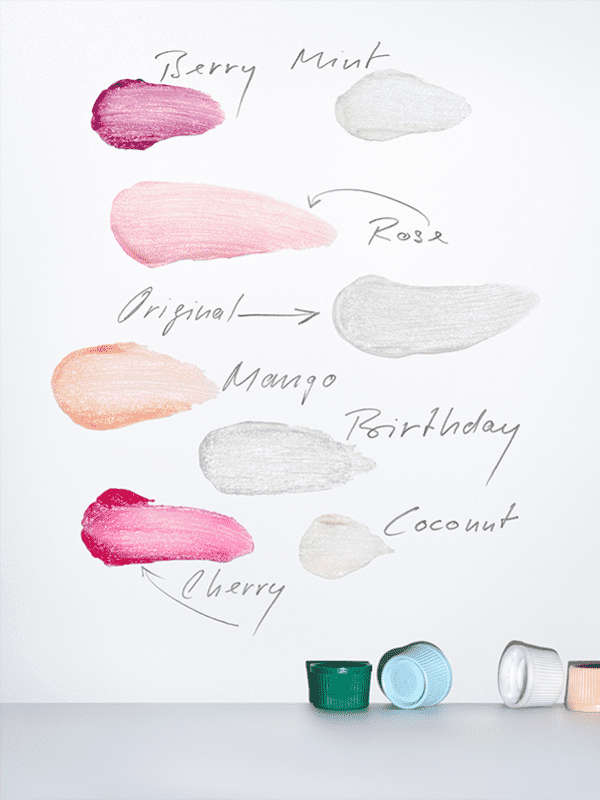 Berry
Mint
Rose
Original
Mango
Birthday
Coconut
Cherry